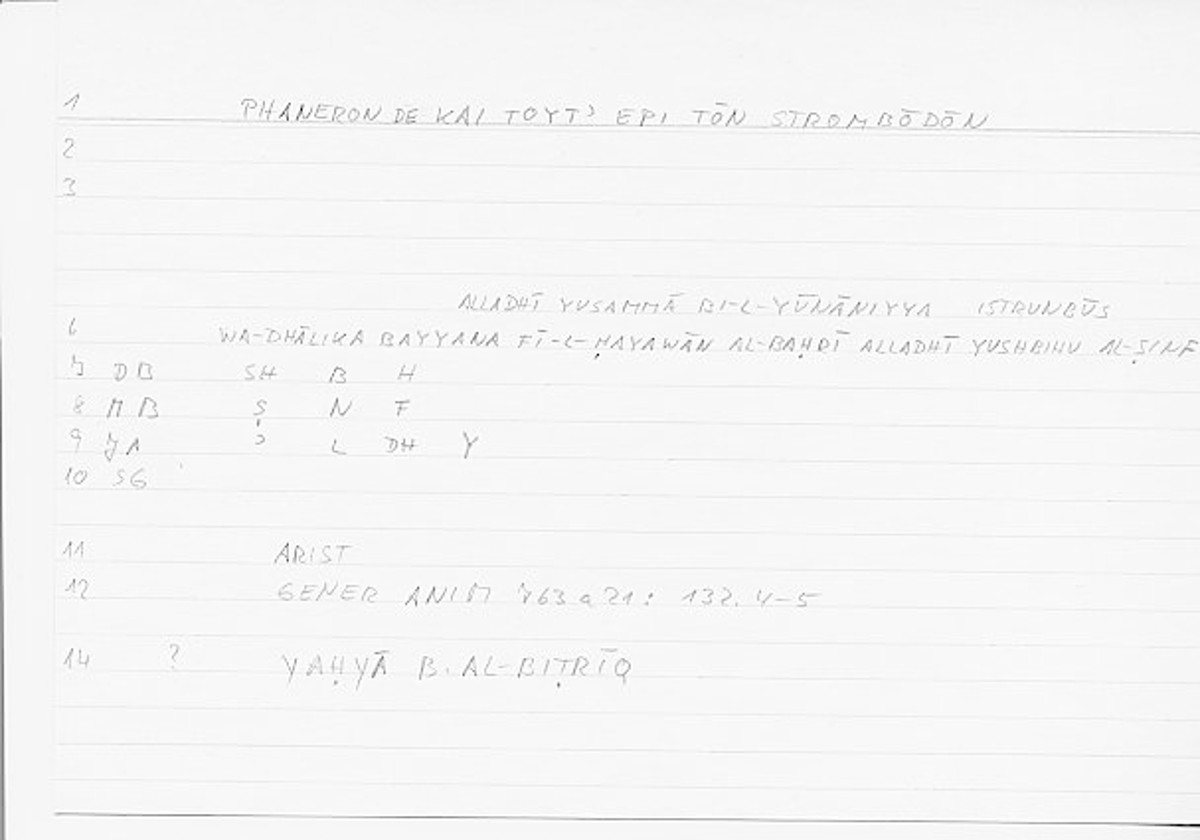 1 PHANERON DE KAI TOYTʾ EPI TŌN STROMBŌDŌN
2
3
ALLADHĪ YUSAMMĀ BI-L-YŪNĀNIYYA ISṬRUNBŪS
6 WA-DHĀLIKA BAYYANA FĪ-L-ḤAYAWĀN AL-BAḤRĪ ALLADHĪ YUSHBIHU AL-ṢINF
7 DB SH B H
8 MB Ṣ N F
9 JA ʾ L DH Y
10 SG
11 ARIST
12 GENER ANIM 763 a 21: 132.4-5
14 ? YAḤYĀ B. AL-BIṬRĪQ